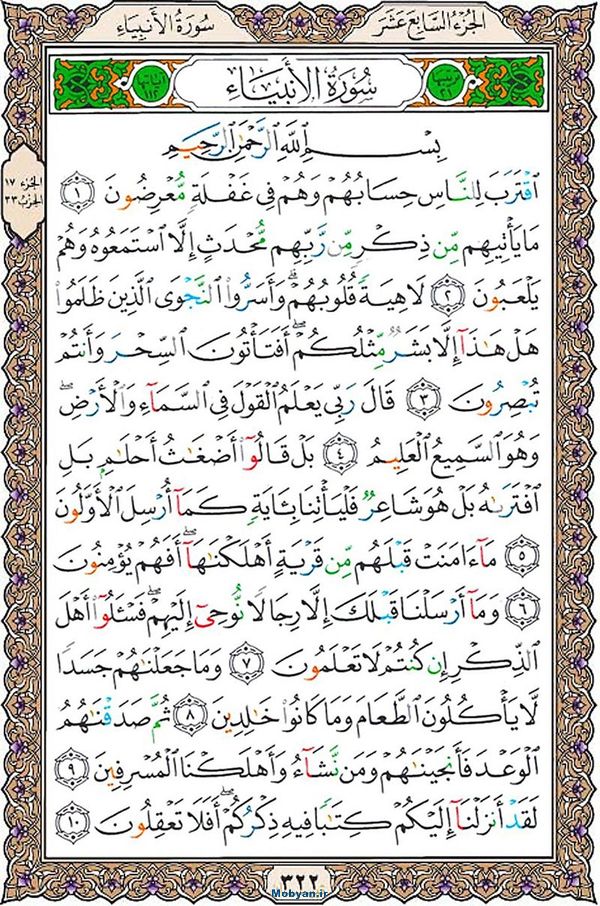 الجزء السابع عشر
سورة الأنبياء
سُورَةُ الأَنبِيَاءِ
الجزء ١٧
الحزب ٣٣
بِسْمِ ٱللَّهِ ٱلرَّحْمَٰنِ ٱلرَّحِيمِ
ٱقْتَرَبَ لِلنَّاسِ حِسَابُهُمْ وَهُمْ فِى غَفْلَةٍ مُّعْرِضُونَ ١
مَا يَأْتِيهِم مِّن ذِكْرٍ مِّن رَّبِّهِم مُّحْدَثٍ إِلَّا ٱسْتَمَعُوهُ وَهُمْ
يَلْعَبُونَ ٢ لَاهِيَةً قُلُوبُهُمْ ۗ وَأَسَرُّوا۟ ٱلنَّجْوَى ٱلَّذِينَ ظَلَمُوا۟
هَلْ هَٰذَآ إِلَّا بَشَرٌ مِّثْلُكُمْ ۖ أَفَتَأْتُونَ ٱلسِّحْرَ وَأَنتُمْ
تُبْصِرُونَ ٣ قَالَ رَبِّى يَعْلَمُ ٱلْقَوْلَ فِى ٱلسَّمَآءِ وَٱلْأَرْضِ ۖ
وَهُوَ ٱلسَّمِيعُ ٱلْعَلِيمُ ٤ بَلْ قَالُوٓا۟ أَضْغَٰثُ أَحْلَٰمٍۭ بَلِ
ٱفْتَرَىٰهُ بَلْ هُوَ شَاعِرٌ فَلْيَأْتِنَا بِـَٔايَةٍ كَمَآ أُرْسِلَ ٱلْأَوَّلُونَ
٥ مَآ ءَامَنَتْ قَبْلَهُم مِّن قَرْيَةٍ أَهْلَكْنَٰهَآ ۖ أَفَهُمْ يُؤْمِنُونَ
٦ وَمَآ أَرْسَلْنَا قَبْلَكَ إِلَّا رِجَالًا نُّوحِىٓ إِلَيْهِمْ ۖ فَسْـَٔلُوٓا۟ أَهْلَ
ٱلذِّكْرِ إِن كُنتُمْ لَا تَعْلَمُونَ ٧ وَمَا جَعَلْنَٰهُمْ جَسَدًا
لَّا يَأْكُلُونَ ٱلطَّعَامَ وَمَا كَانُوا۟ خَٰلِدِينَ ٨ ثُمَّ صَدَقْنَٰهُمُ
ٱلْوَعْدَ فَأَنجَيْنَٰهُمْ وَمَن نَّشَآءُ وَأَهْلَكْنَا ٱلْمُسْرِفِينَ ٩
لَقَدْ أَنزَلْنَآ إِلَيْكُمْ كِتَٰبًا فِيهِ ذِكْرُكُمْ ۖ أَفَلَا تَعْقِلُونَ ١٠
٣٢٢
Mobyan.ir